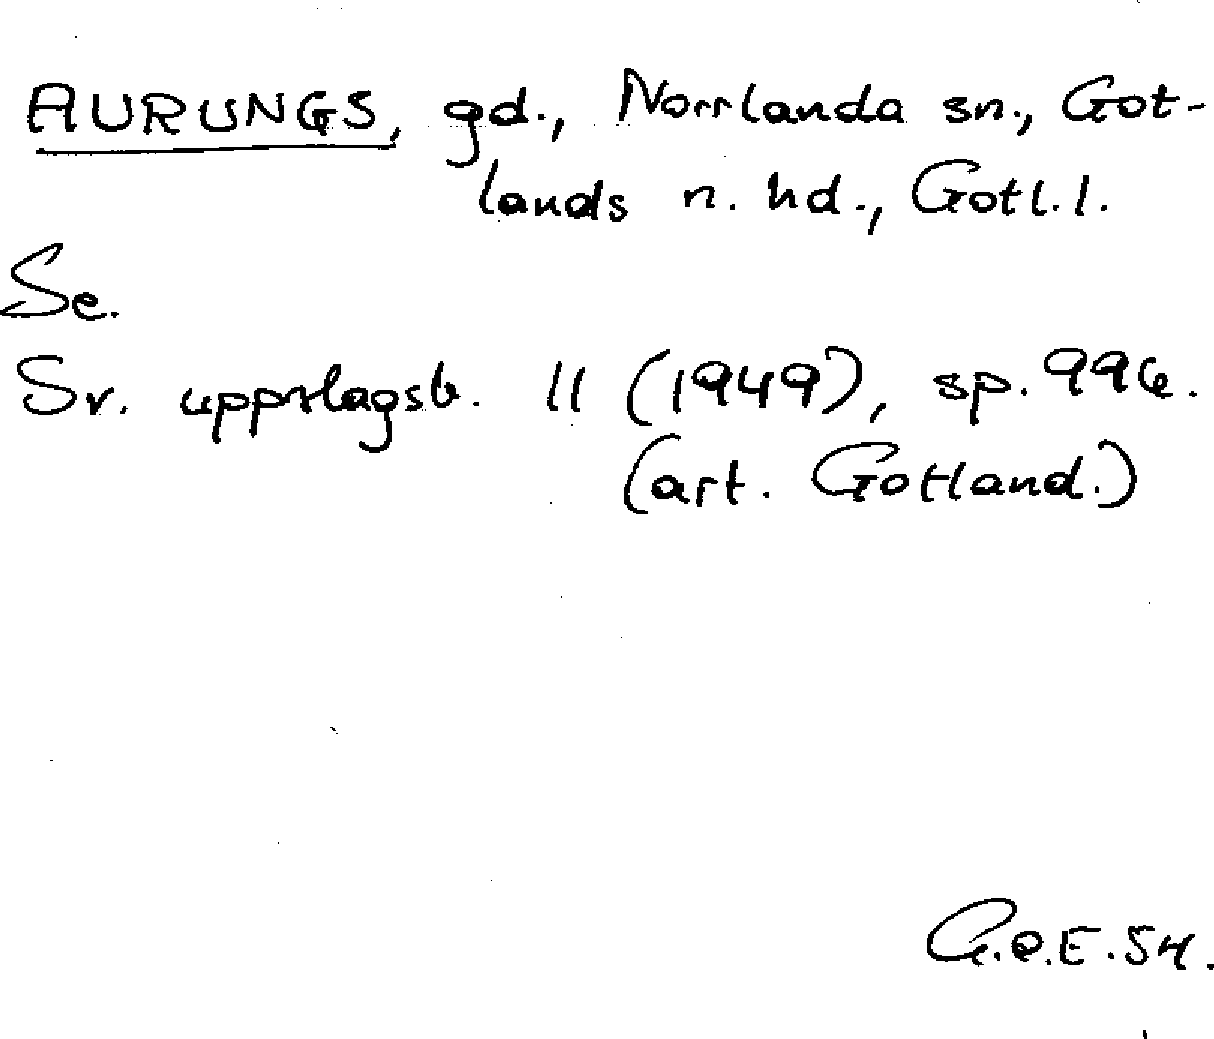 AURUNGS, gd., Norrlanda sn., Got-
lands n. hd., Gotl. l.
Se.
Sv. uppslagsb. 11 (1949), sp. 996.
(art. Gotland.)
G.O.E.SH.